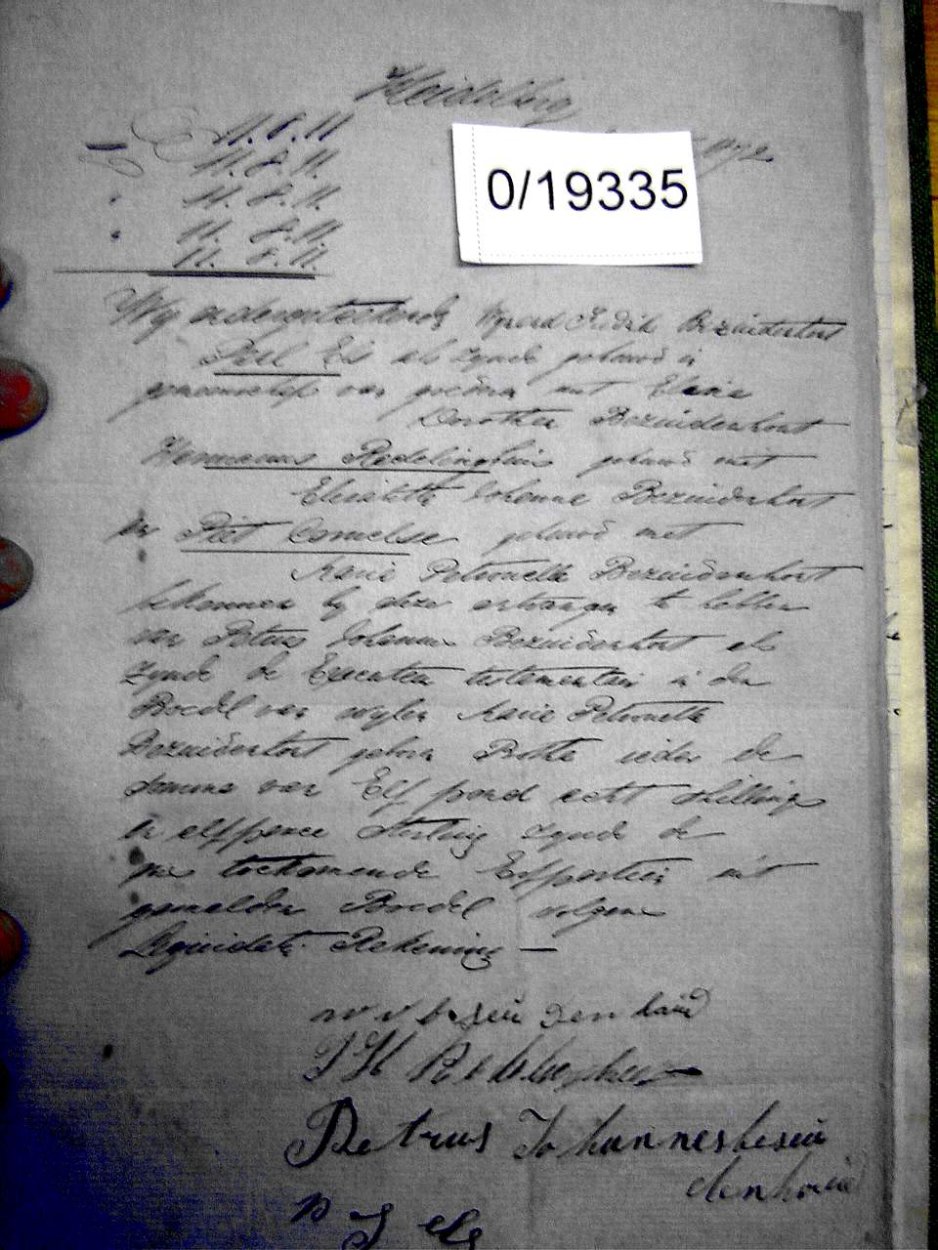 Heidelberg
1872
0/19335
£ 11. 8. 11
11. 8. 11.
11. 8. 11.
11. 8. 11
11. 8. 11.
Wij ondergeteekende Bezuidenhout
Poul Els als zynde getrouwd in
gemeenschap van goederen met
Dorothea Bezuidenhout
Hermanus Redelinghuis getrouwd met
Elisabeth Johanna Bezuidenhout
en Piet Cornelse getrouwd met
Maria Petronella Bezuidenhout
bekennen by deze ontvangen te hebben
van Petrus Johannes Bezuidenhout als
zynde de Executeur testementair in den
Boedel van wylen Maria Petronella
Bezuidenhout gebore ieder de
somma van Elf pond acht shillings
en elfpence Sterling zynde de
toekomende Erfportien uit
gemelden Boedel volgens
Liquidatie Rekening —
Petrus Johannes besui
denhoud
P J els